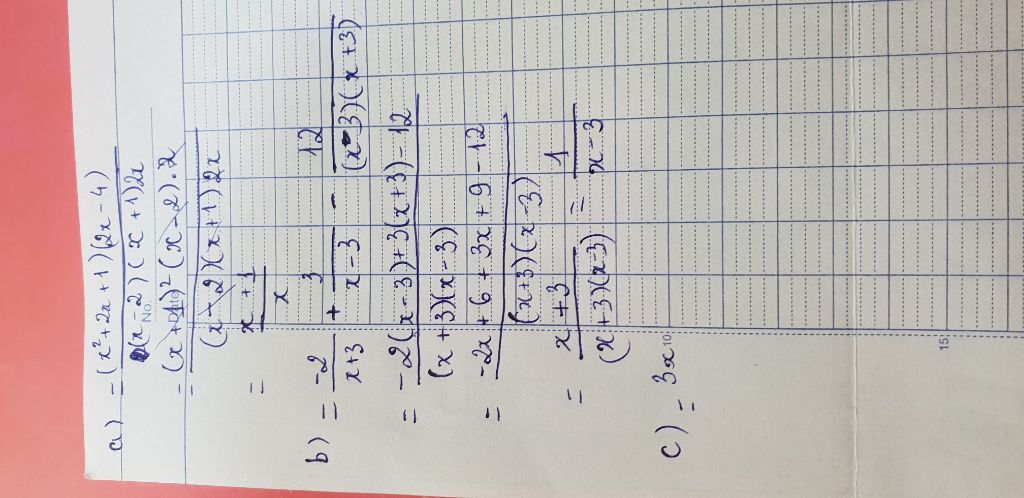 a) = (x² + 2x + 1)(2x - 4)
(x - 2)(x + 1)2x
= (x + 1)² (x - 2).2
(x - 2)(x + 1)2x
= x + 1
x
b) = -2/x+3 + 3/x-3 - 12/(x-3)(x+3)
= -2(x-3)+3(x+3)-12
(x+3)(x-3)
= -2x+6+3x+9-12
(x+3)(x-3)
= x+3/(x+3)(x-3) = 1/x-3
c) = 3x
No.
Date
10
15